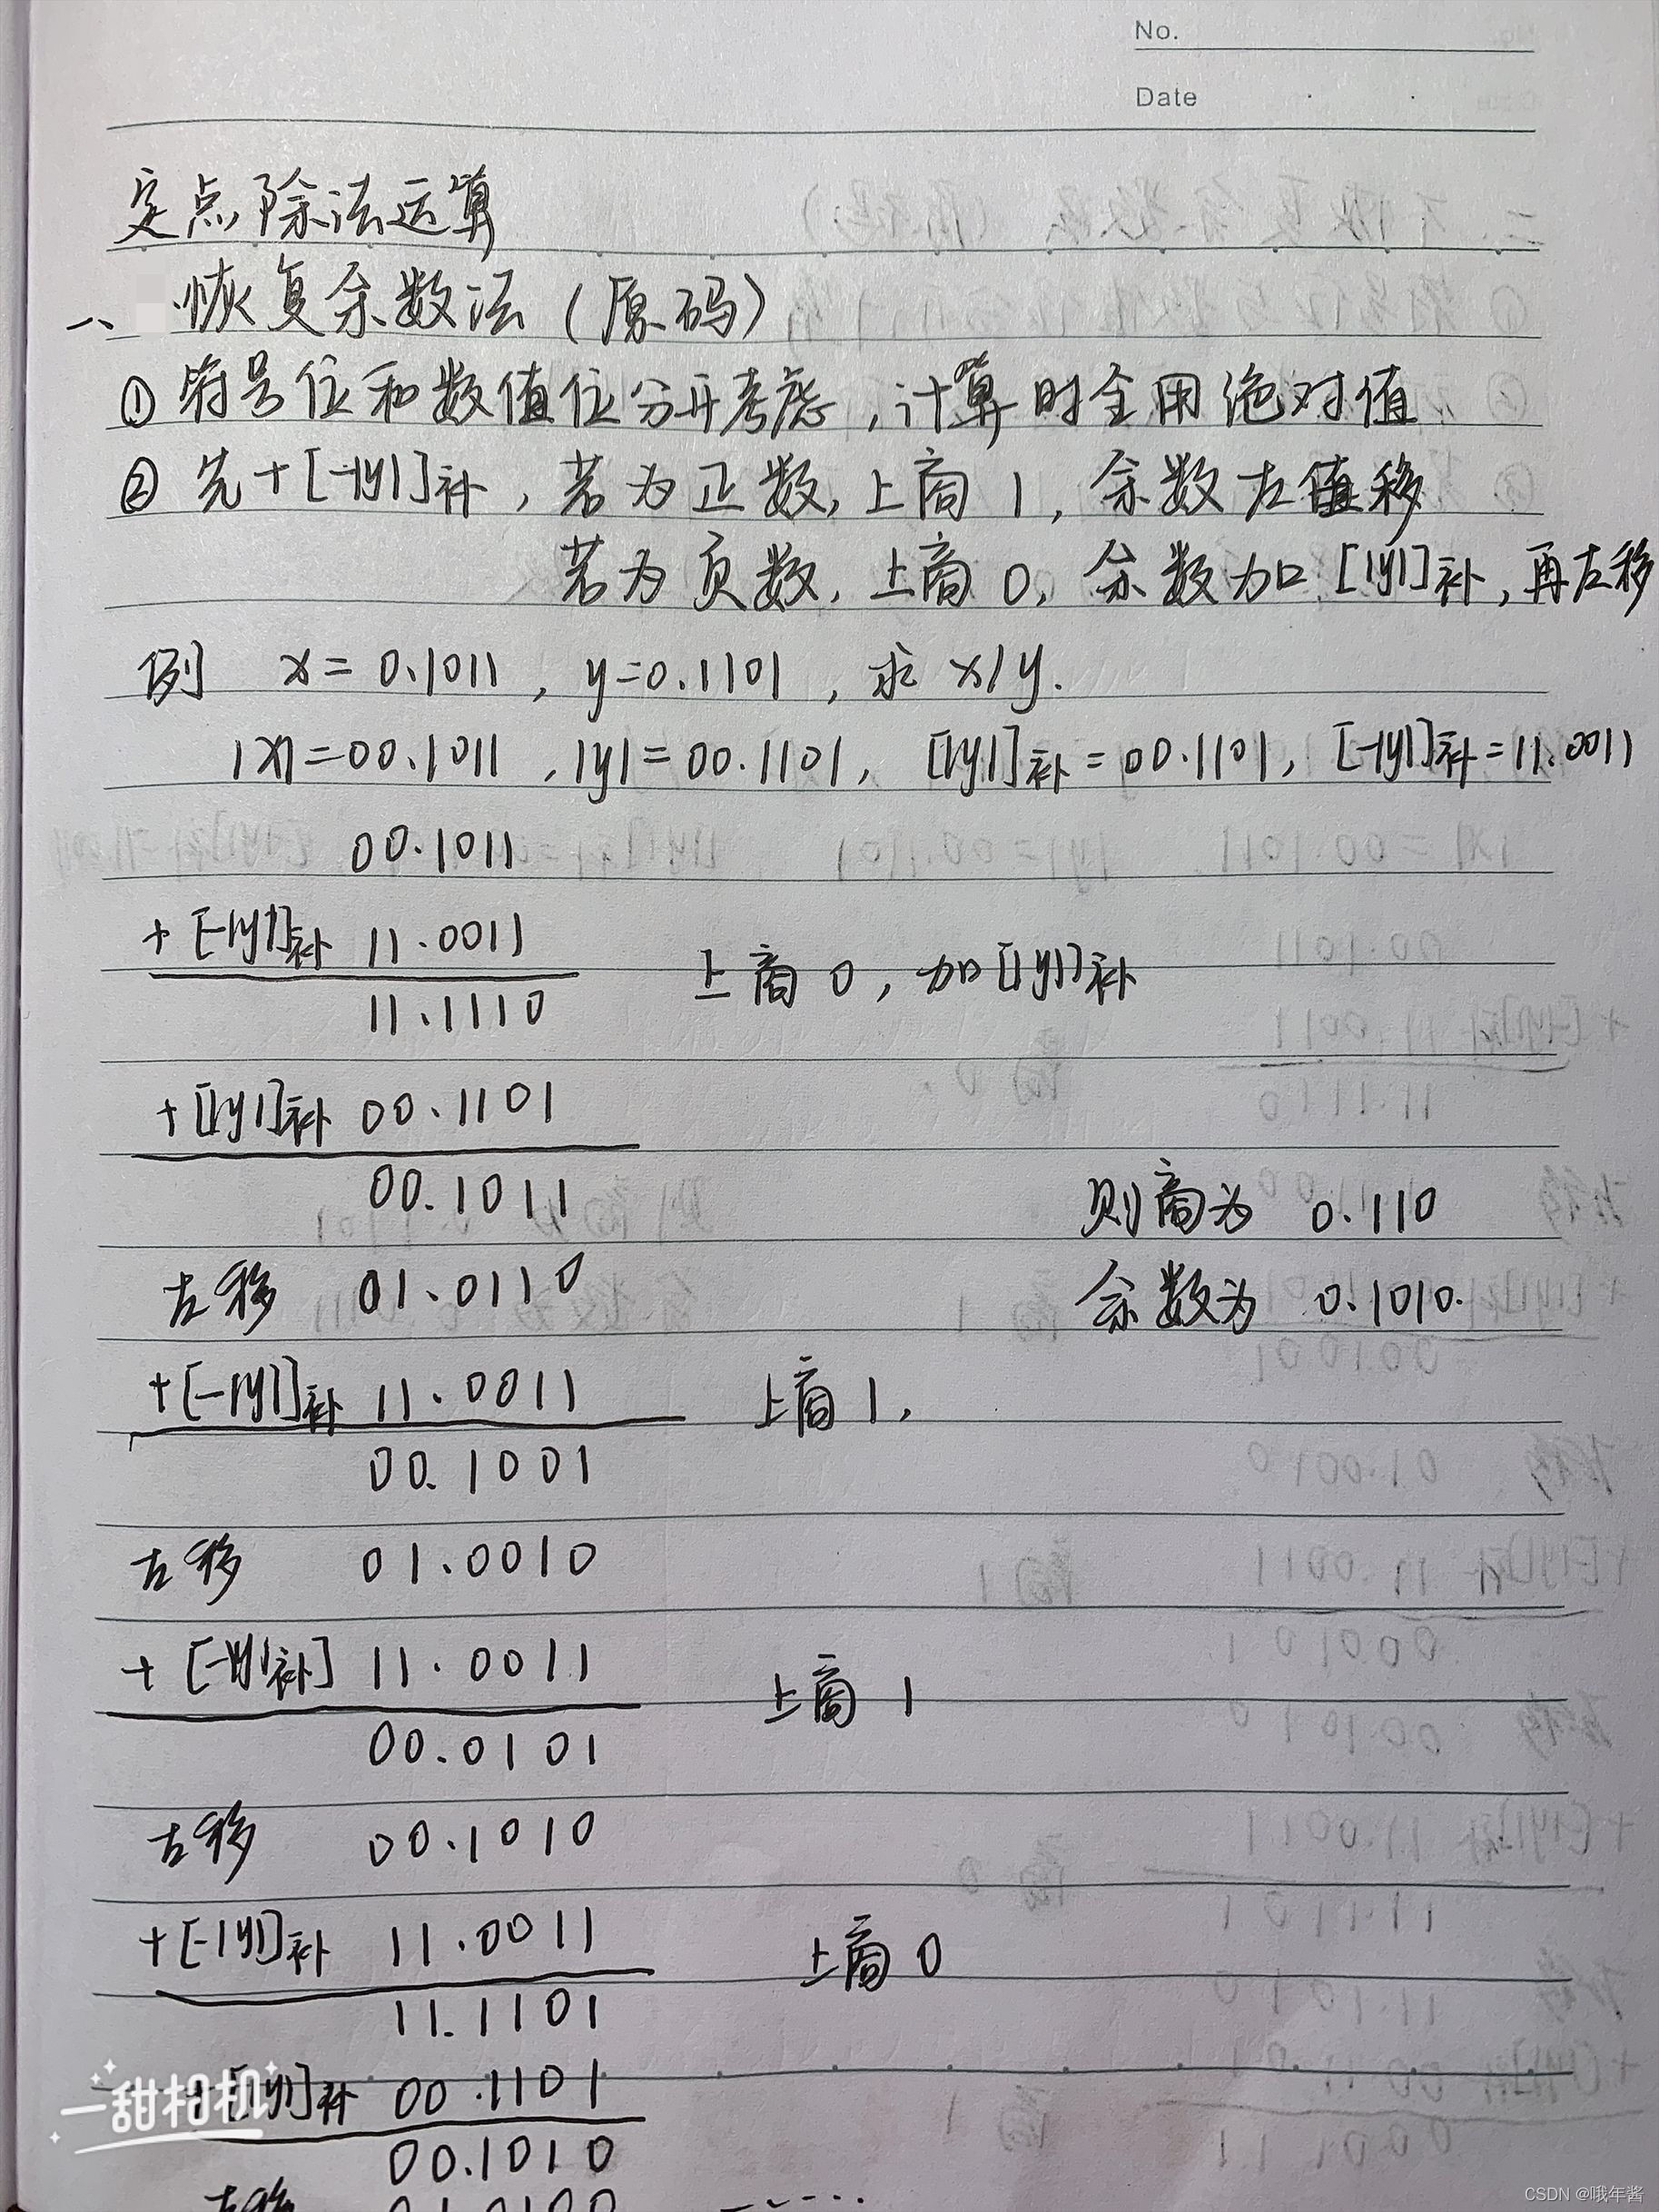 No.
Date
定点除法运算
一、恢复余数法（原码）
① 符号位和数值位分开考虑，计算时全用绝对值
② 先+[-|y|]补，若为正数，上商1，余数左移
若为负数，上商0，余数加[|y|]补，再左移
例 x=0.1011，y=0.1101，求x/y.
|x|=00.1011，|y|=00.1101，[|y|]补=00.1101，[-|y|]补=11.0011
00.1011
+[-|y|]补 11.0011 上商0，加[|y|]补
11.1110
+[|y|]补 00.1101
00.1011 则商为 0.110
左移 01.0110 余数为 0.1010.
+[-|y|]补 11.0011 上商1，
00.1001
左移 01.0010
+[-|y|补] 11.0011 上商1
00.0101
左移 00.1010
+[-|y|]补 11.0011 上商0
11.1101
+[|y|]补 00.1101
00.1010
左移 01.0100 ……
一甜相机
CSDN @哦年酱